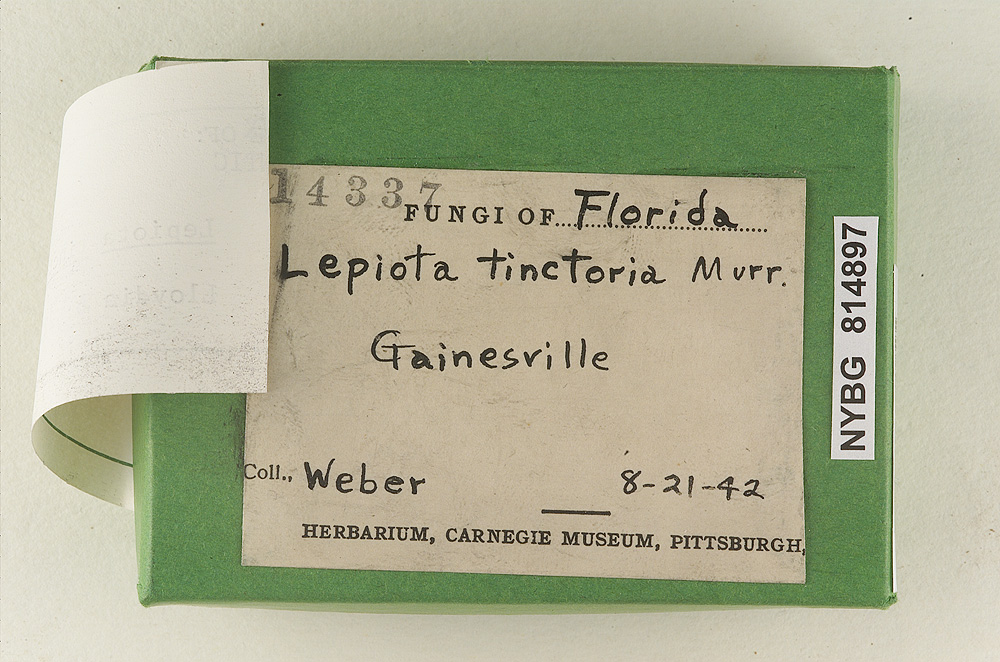 14337
FUNGI OF Florida
Lepiota tinctoria Murr.
Gainesville
Coll., Weber 8-21-42
HERBARIUM, CARNEGIE MUSEUM, PITTSBURGH,
NYBG 814897